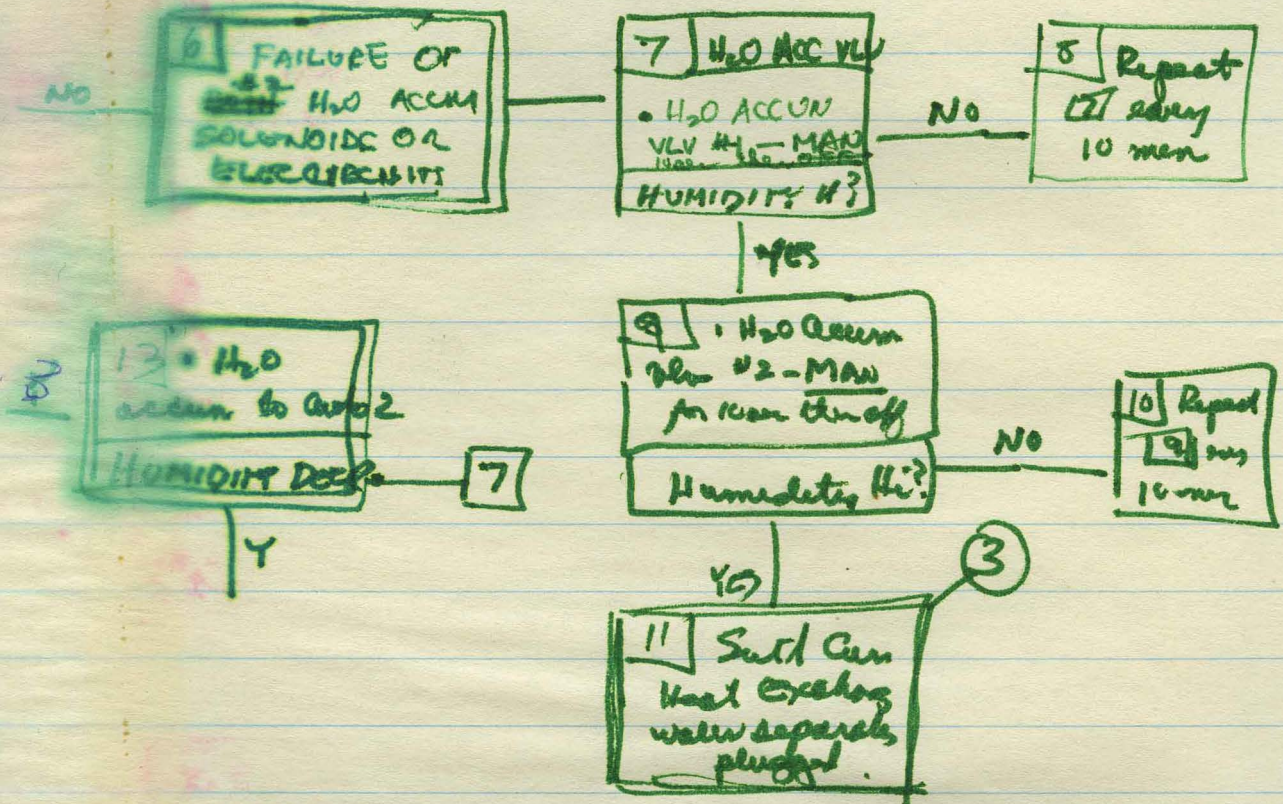 NO
6 FAILURE OF
#2 H₂O ACCUM
SOLENOIDS OR
ELEC CIRCUITS
7 H₂O ACC VLV
• H₂O ACCUM
VLV #1 – MAN
HUMIDITY HI?
NO
8 Repeat
7 every
10 min
YES
13 • H₂O
accum to 2
HUMIDITY DECR
7
Y
NO
9 • H₂O Accum
vlv #2 – MAN
for 10 sec then off
Humidity Hi?
NO
10 Repeat
9 every
10 min
YES
3
11 Suit Cun
Heat Exchang
water separator
plugged.